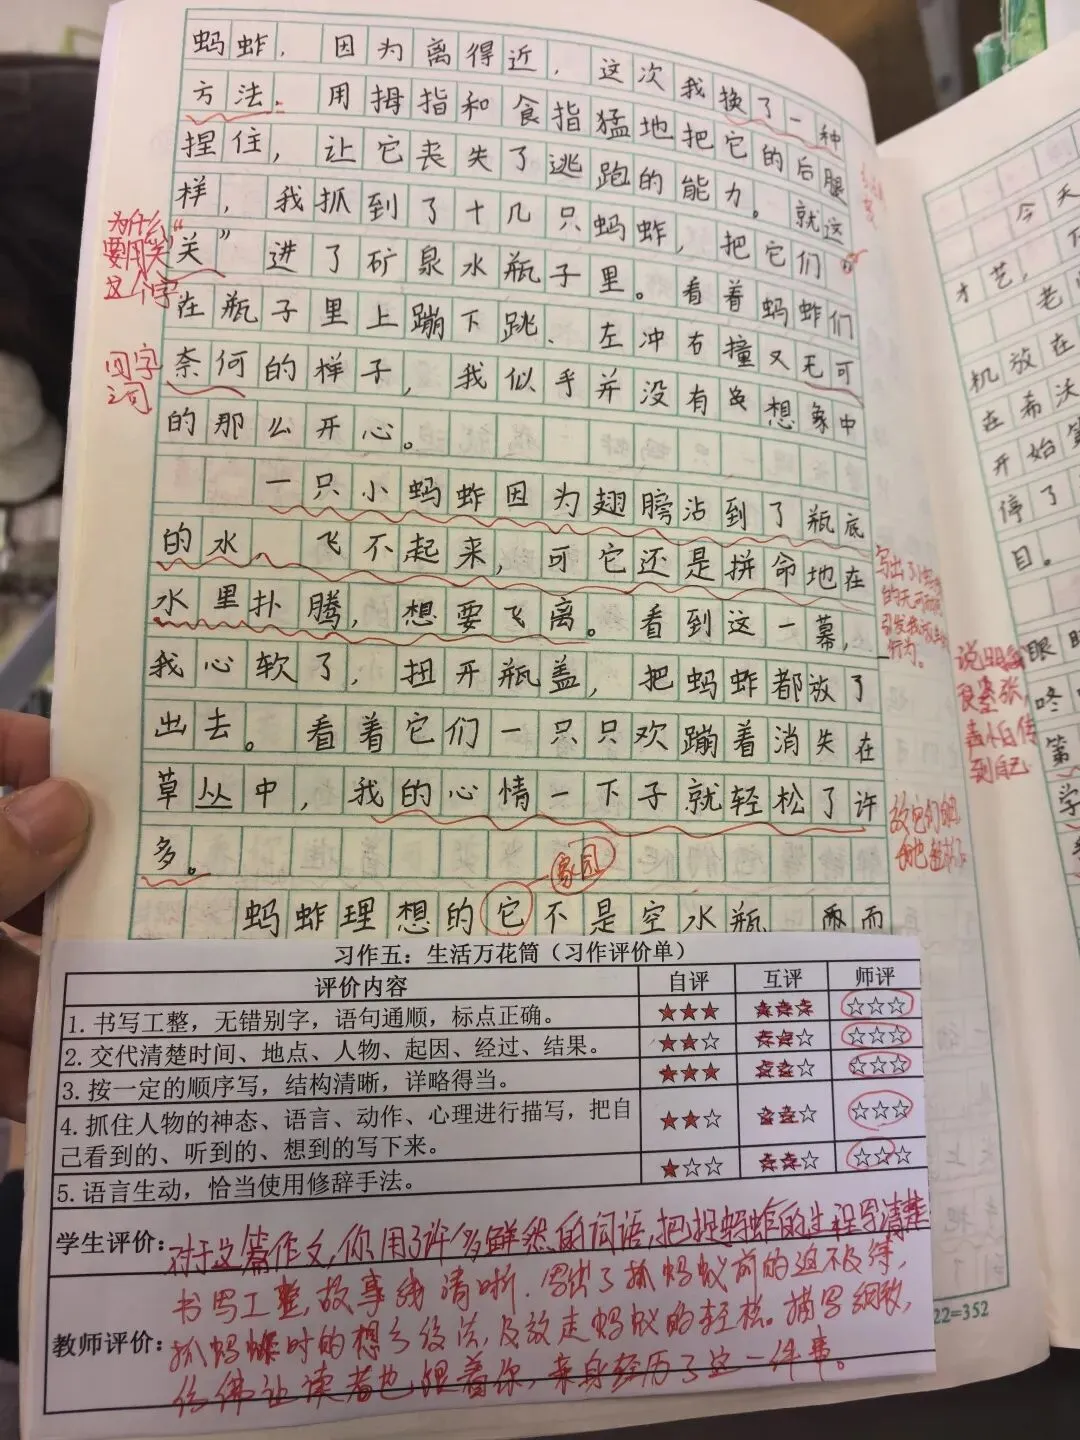 蚂蚱，因为离得近，这次我换了一种
方法。用拇指和食指猛地把它的后腿
捏住，让它丧失了逃跑的能力。就这
样，我抓到了十几只蚂蚱，把它们
“关”进了矿泉水瓶子里。看着蚂蚱们
在瓶子里上蹦下跳、左冲右撞又无可
奈何的样子，我似乎并没有想象中
的那么开心。
一只小蚂蚱因为翅膀沾到了瓶底
的水，飞不起来，可它还是拼命地在
水里扑腾，想要飞离。看到这一幕，
我心软了，扭开瓶盖，把蚂蚱都放了
出去。看着它们一只只欢蹦着消失在
草丛中，我的心情一下子就轻松了许
多。
蚂蚱理想的它不是空水瓶，而
家园
为什么
要用“关”
这个字
四字
之词
写出了小
的无可
引发我
行为。
习作五：生活万花筒（习作评价单）
评价内容 自评 互评 师评
1. 书写工整，无错别字，语句通顺，标点正确。 ★★★ ★★★ ☆☆☆
2. 交代清楚时间、地点、人物、起因、经过、结果。 ★★☆ ★★☆ ☆☆☆
3. 按一定的顺序写，结构清晰，详略得当。 ★★★ ★★☆ ☆☆☆
4. 抓住人物的神态、语言、动作、心理进行描写，把自
己看到的、听到的、想到的写下来。 ★★☆ ★★☆ ☆☆☆
5. 语言生动，恰当使用修辞手法。 ★☆☆ ★★☆ ☆☆☆
学生评价：对于这篇作文，你用了许多鲜然的词语，把捉蚂蚱的过程写清楚
教师评价：书写工整，故事线清晰．写出了抓蚂蚁前的迫不及待，
抓蚂蚱时的想方设法，及放走蚂蚁的轻松。描写细致，
仿佛让读者也跟着你，亲身经历了这一件事。
今天
才艺，
老
机放在
在希沃
开始第
停了
目。
眼
咚
第
学
说明
很紧张，
到自己
22=352